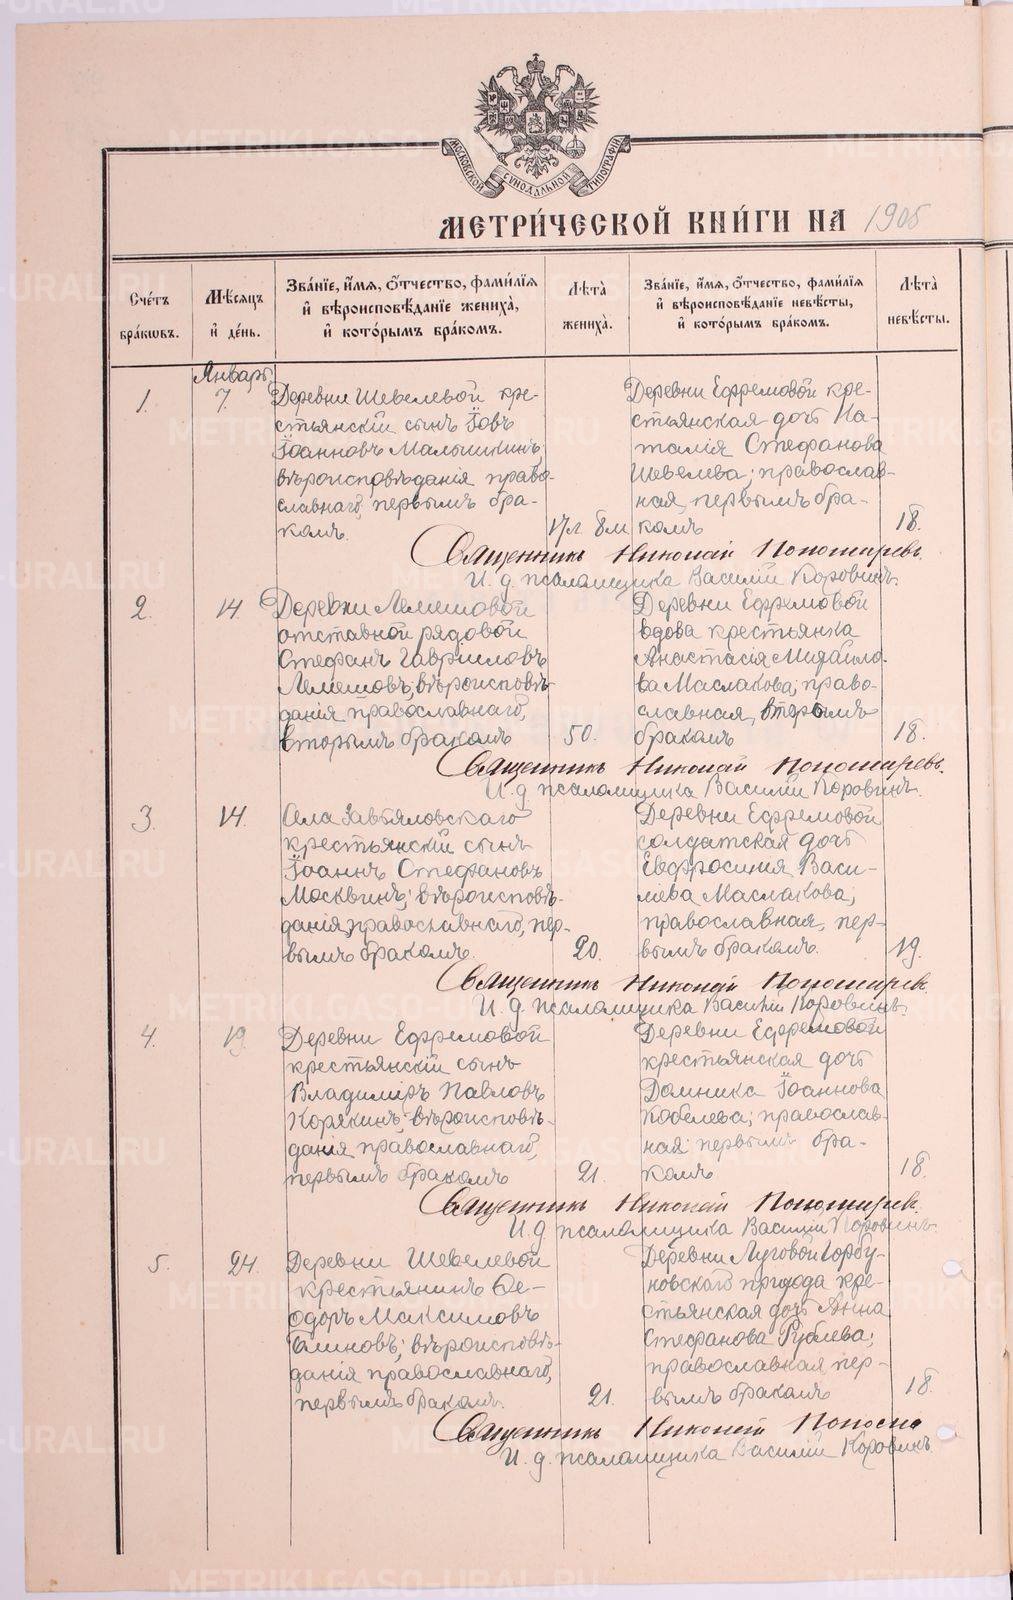 МОСКОВСКОЙ СУНОДАЛЬНОЙ ТИПОГРАФІИ
МЕТРИ́ЧЕСКОЙ КНИ́ГИ НА 1905
Сче́тъ бра́кωвъ.
Мѣ́сяцъ и҆ де́нь.
Зва́нїе, и҆́мѧ, ѻ҆́тчество, фами́лїѧ
и҆ вѣроисповѣ́данїе жениха̀,
и҆ кото́рымъ бра́комъ.
Лѣ́та жениха̀.
Зва́нїе, и҆́мѧ, ѻ҆́тчество, фами́лїѧ
и҆ вѣроисповѣ́данїе невѣ́сты,
и҆ кото́рымъ бра́комъ.
Лѣ́та невѣ́сты.
Январь
1. 7.
Деревни Шевелевой кре-
стьянскій сынъ Іовъ
Іоанновъ Малышкинъ,
вѣроисповѣданія право-
славнаго, первымъ бра-
комъ.
17 л. 8 м
Деревни Ефремовой кре-
стьянская дочь На-
талія Стефанова
Шевелева; православ-
ная, первымъ бра-
комъ
18.
Священникъ Николай Пономаревъ.
И. д. псаломщика Василій Коровинъ.
2. 14.
Деревни Лемешовой
отставной рядовой
Стефанъ Гавриловъ
Лемешовъ; вѣроисповѣ-
данія православнаго,
вторымъ бракомъ
50.
Деревни Ефремовой
вдова крестьянка
Анастасія Михайло-
ва Маслакова; право-
славная, вторымъ
бракомъ
18.
Священникъ Николай Пономаревъ.
И. д. псаломщика Василій Коровинъ.
3. 14.
Села Завьяловскаго
крестьянскій сынъ
Іоаннъ Стефановъ
Москвинъ; вѣроисповѣ-
данія православнаго, пер-
вымъ бракомъ.
20.
Деревни Ефремовой
солдатская дочь
Евфросинія Васи-
льева Маслакова;
православная, пер-
вымъ бракомъ.
19.
Священникъ Николай Пономаревъ.
И. д. псаломщика Василій Коровинъ.
4. 19.
Деревни Ефремовой
крестьянскій сынъ
Владиміръ Павловъ
Корякинъ; вѣроисповѣ-
данія православнаго,
первымъ бракомъ
21.
Деревни Ефремовой
крестьянская дочь
Домника Іоаннова
Кобелева; православ-
ная; первымъ бра-
комъ
18.
Священникъ Николай Пономаревъ.
И. д псаломщика Василій Коровинъ.
5. 24.
Деревни Шевелевой
крестьянинъ Ѳе-
одоръ Максимовъ
вѣроисповѣ-
данія православнаго,
первымъ бракомъ.
21.
Деревни Луговой Горбу-
новскаго прихода кре-
стьянская дочь Анна
Стефанова Рублева;
православная пер-
вымъ бракомъ
18.
Священникъ Николай
И. д. псаломщика Василій Коровинъ
METRIKI.GASO-URAL.RU